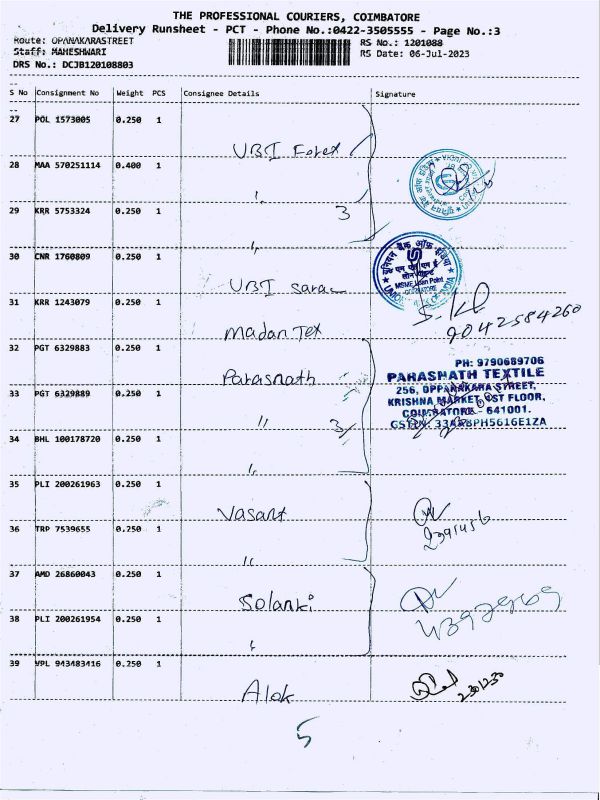 THE PROFESSIONAL COURIERS, COIMBATORE
Delivery Runsheet - PCT - Phone No.:0422-3505555 - Page No.:3
Route: OPANAKARASTREET
RS No.: 1201088
Staff: MAHESHWARI
RS Date: 06-Jul-2023
DRS No.: DCJB120108803
S No Consignment No Weight PCS Consignee Details Signature
27 POL 1573005 0.250 1
UBI Forex
28 MAA 570251114 0.400 1
〃
29 KRR 5753324 0.250 1
3
〃
30 CNR 1760809 0.250 1
UBI
यूनियन बैंक ऑफ़ इंडिया
MSME Loan Point
31 KRR 1243079 0.250 1
Madan Tex
9042584260
32 PGT 6329883 0.250 1
Parasnath
PH: 9790689706
PARASNATH TEXTILE
256, OPPANAKARA STREET,
KRISHNA MARKET, 1ST FLOOR,
COIMBATORE - 641001.
33 PGT 6329889 0.250 1
〃
3
34 BHL 100178720 0.250 1
〃
35 PLI 200261963 0.250 1
Vasant
36 TRP 7539655 0.250 1
〃
37 AMD 26860043 0.250 1
Solanki
38 PLI 200261954 0.250 1
〃
39 VPL 943483416 0.250 1
Alok
5